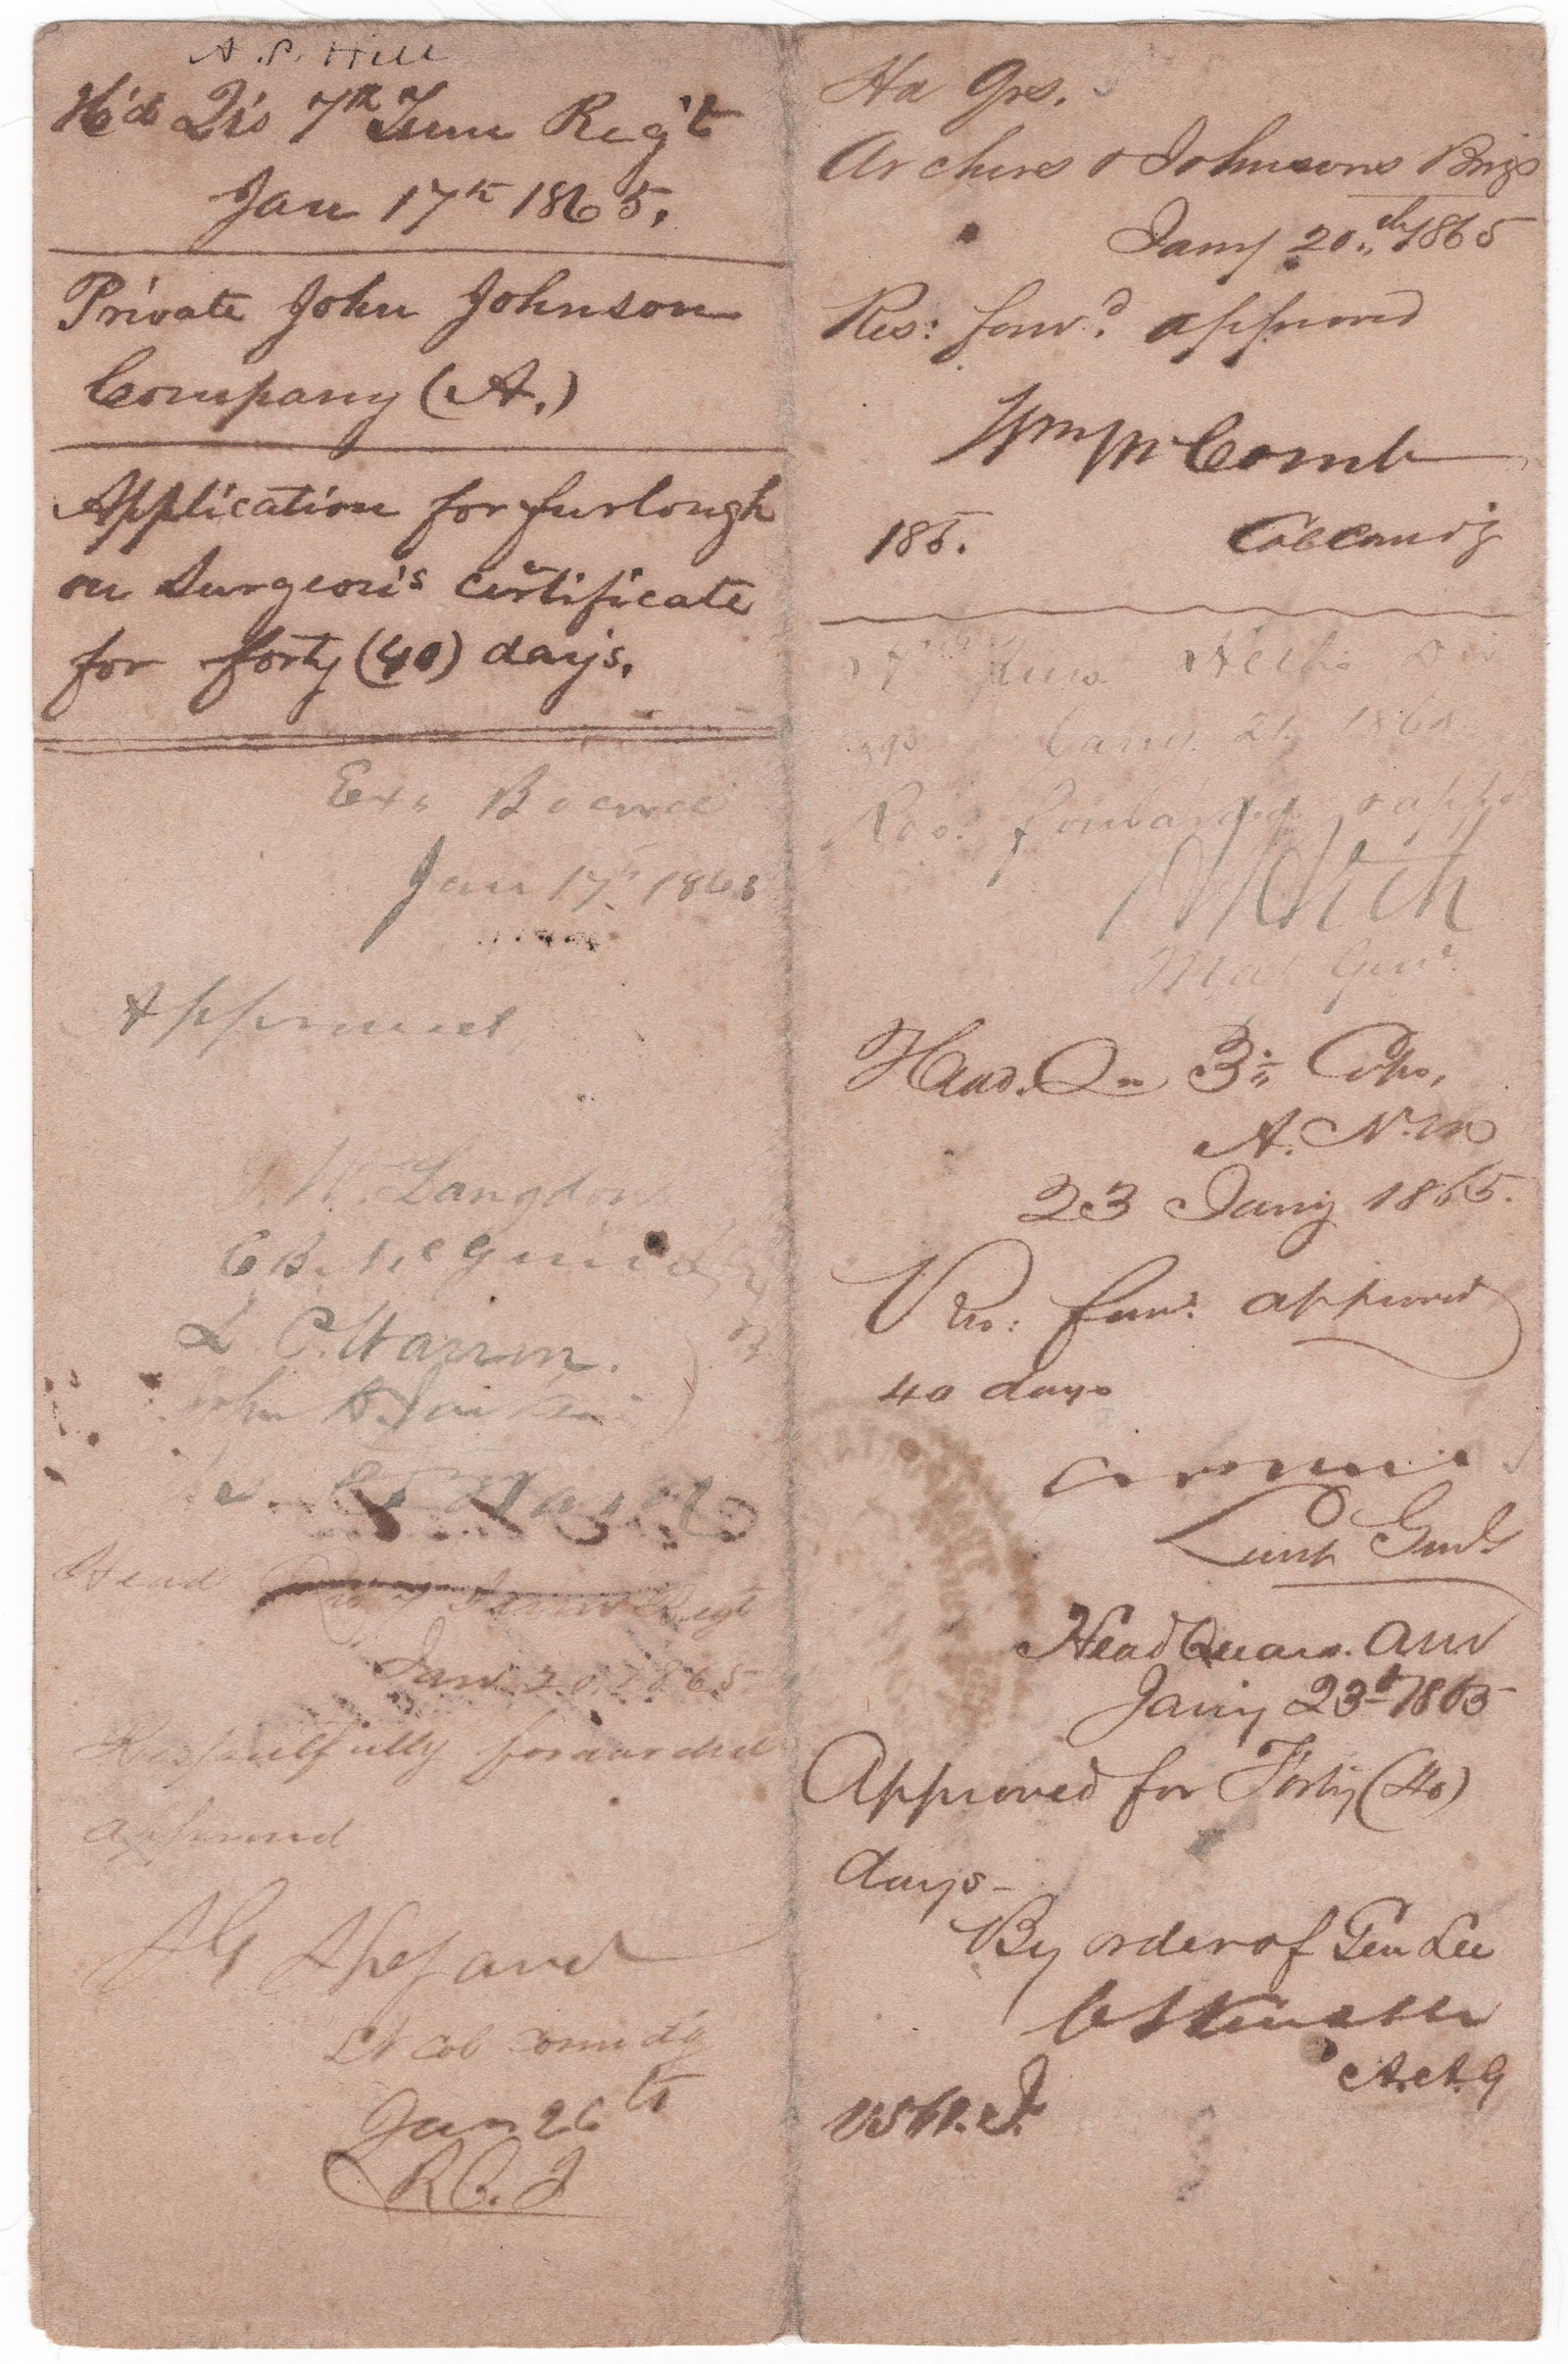 A. P. Hill
H'd Qrs 7th Tenn Reg't
Jan 17th 1865.
Private John Johnson
Company (A.)
Application for furlough
on Surgeon's certificate
for forty (40) days.
Exr Board
Jan 17th 1865
Approved,
W. Langdon
C B.
L. C. Warren.
John A
Head Qrs 7 Tenn Regt
Jan 20, 1865
Respectfully forwarded
approved
J G Shepard
Lt Col Comdg
Jan 26th
R C. J
Hd Qrs.
Archers & Johnsons Brigs
Jany 20th 1865
Res: forwd. approved
Wm McComb
185. Col Comdg
Heths Div
Jany. 21. 1865
Res. forwarded & appd
H Heth
Maj Genl.
Head. Qrs 3rd Corps,
A. N. Va
23 Jany 1865.
Res: forwd. approved
40 days
Lieut Genl
Head Quars. ANV
Jany 23d 1865
Approved for Forty (40)
days-
By order of Gen Lee
A.A.G